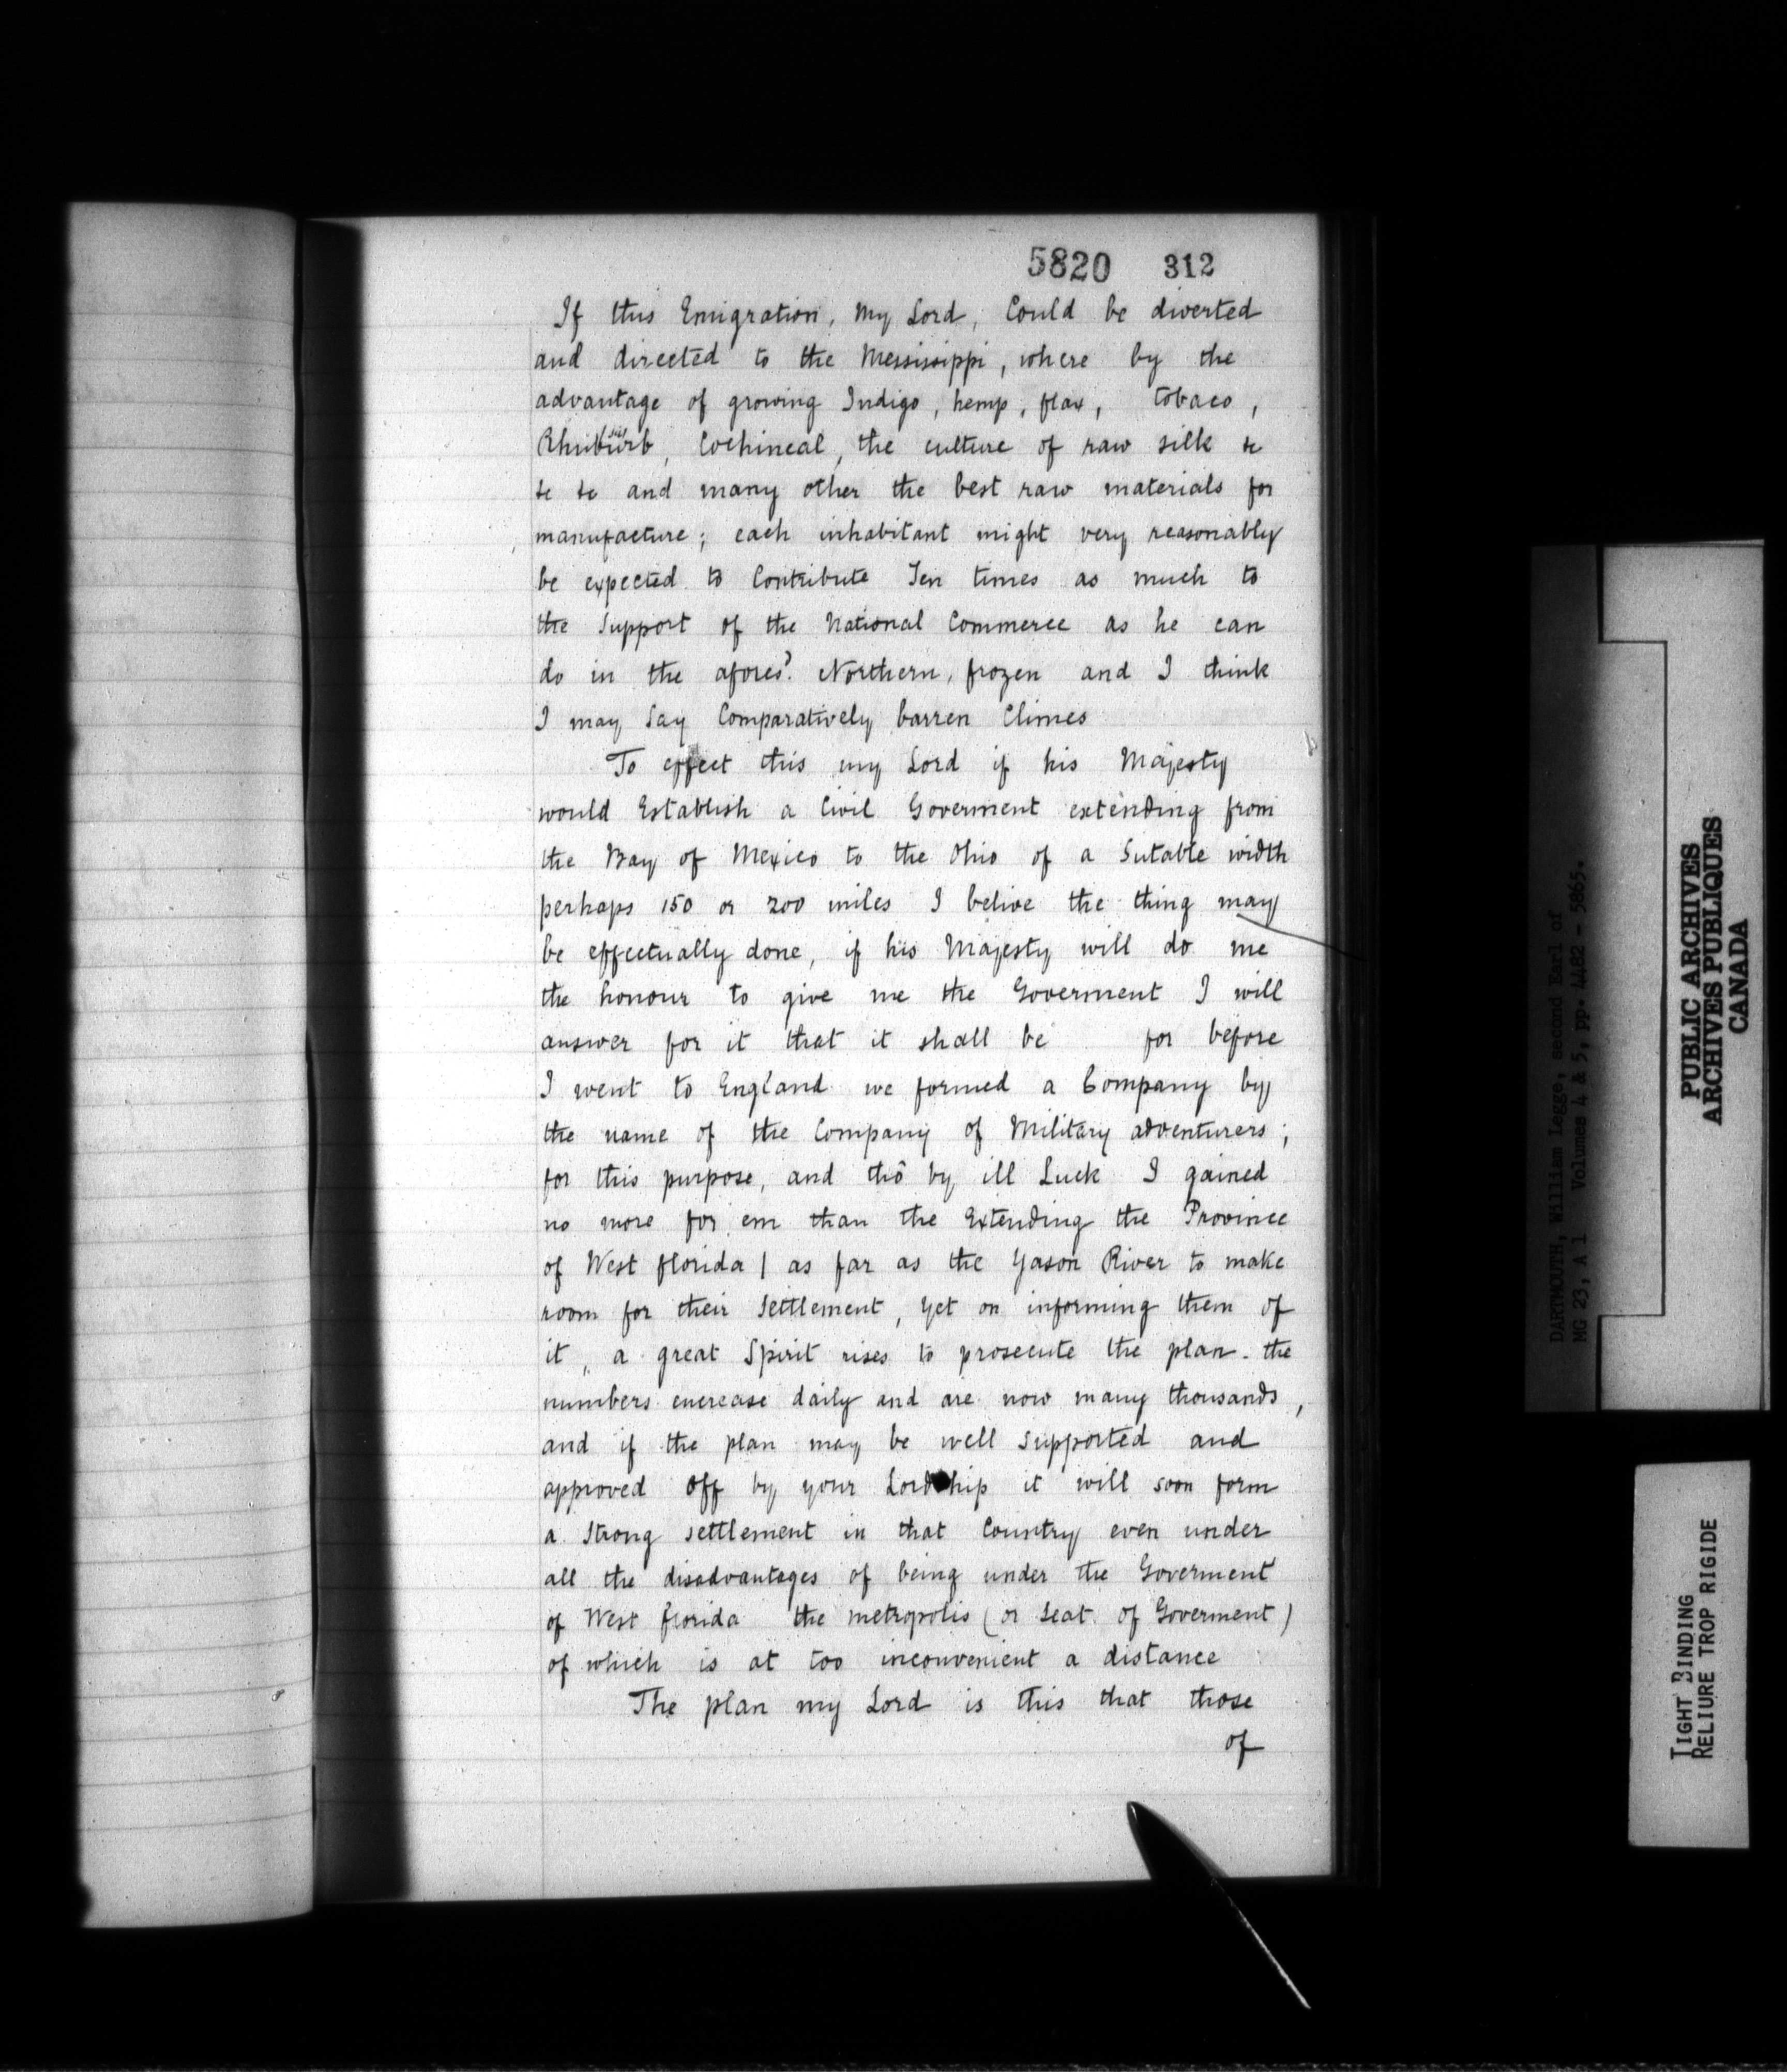 5820 312
If this Emigration, My Lord, Could be diverted
and directed to the Messissippi, where by the
advantage of growing Indigo, hemp, flax, tobaco,
(sic)
Rhuburb, Cochineal, the culture of raw silk &c
&c &c and many other the best raw materials for
manufacture; each inhabitant might very reasonably
be expected to Contribute Ten times as much to
the Support of the National Commerce as he can
do in the afores.d Northern, frozen and I think
I may Say Comparatively barren Climes
To effect this my Lord if his Majesty
would Establish a Civil Goverment extending from
the Bay of Mexico to the Ohio of a Sutable width
perhaps 150 or 200 miles I belive the thing may
be effectually done, if his Majesty will do me
the honour to give me the Goverment I will
answer for it that it shall be for before
I went to England we formed a Company by
the name of the Company of Military adventurers;
for this purpose, and thô by ill Luck I gained
no more for em than the Extending the Province
of West florida | as far as the Yason River to make
room for their Settlement, yet on informing them of
it, a great Spirit rises to prosecute the plan. the
numbers encrease daily and are now many thousands,
and if the plan may be well Supported and
approved Off by your Lordship it will soon form
a Strong settlement in that Country even under
all the disadvantages of being under the Goverment
of West florida the metropolis (or Seat of Goverment)
of which is at too inconvenient a distance
The plan my Lord is this that those
of
DARTMOUTH, William Legge, second Earl of
MG 23, A 1 Volumes 4 & 5, pp. 4482 - 5865.
PUBLIC ARCHIVES
ARCHIVES PUBLIQUES
CANADA
TIGHT BINDING
RELIURE TROP RIGIDE